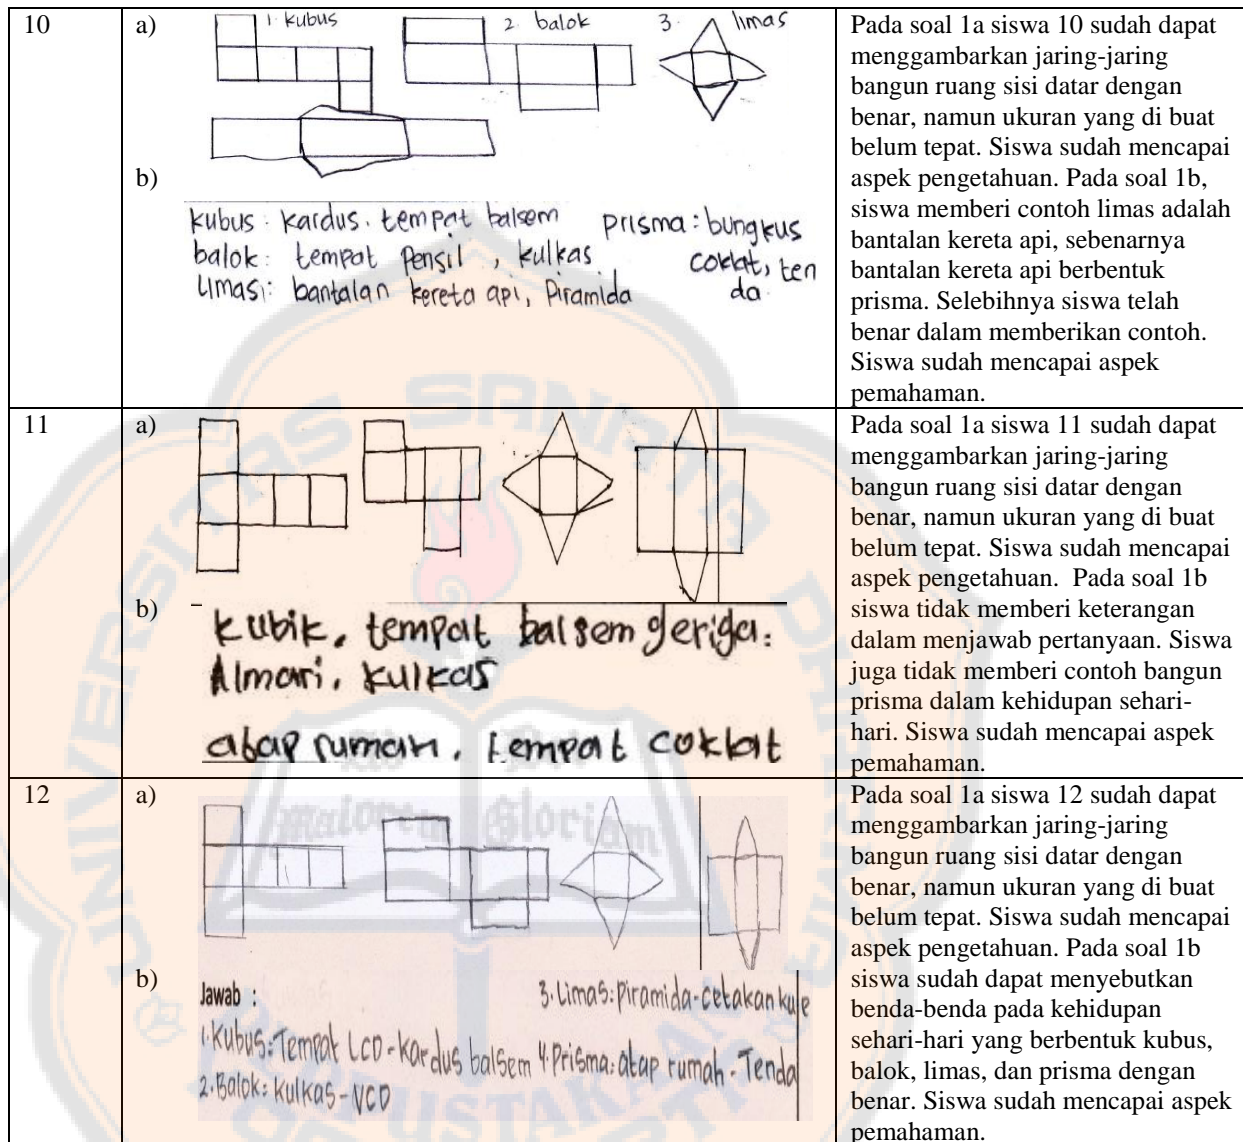 10
a)
1. kubus
2. balok
3. limas
b)
kubus : kardus. tempat balsem
balok : tempat pensil, kulkas
Limasi: bantalan kereta api, Piramida
prisma : bungkus
coklat, ten
da
Pada soal 1a siswa 10 sudah dapat
menggambarkan jaring-jaring
bangun ruang sisi datar dengan
benar, namun ukuran yang di buat
belum tepat. Siswa sudah mencapai
aspek pengetahuan. Pada soal 1b,
siswa memberi contoh limas adalah
bantalan kereta api, sebenarnya
bantalan kereta api berbentuk
prisma. Selebihnya siswa telah
benar dalam memberikan contoh.
Siswa sudah mencapai aspek
pemahaman.
11
a)
b)
kubik, tempat balsem geriga:
Almari, kulkas
atap rumah, tempat coklat
Pada soal 1a siswa 11 sudah dapat
menggambarkan jaring-jaring
bangun ruang sisi datar dengan
benar, namun ukuran yang di buat
belum tepat. Siswa sudah mencapai
aspek pengetahuan. Pada soal 1b
siswa tidak memberi keterangan
dalam menjawab pertanyaan. Siswa
juga tidak memberi contoh bangun
prisma dalam kehidupan sehari-
hari. Siswa sudah mencapai aspek
pemahaman.
12
a)
b)
Jawab :
1. Kubus: Tempat LCD - Kardus balsem
2. Balok: kulkas - VCD
3. Limas: piramida - cetakan kue
4. Prisma: atap rumah - Tenda
Pada soal 1a siswa 12 sudah dapat
menggambarkan jaring-jaring
bangun ruang sisi datar dengan
benar, namun ukuran yang di buat
belum tepat. Siswa sudah mencapai
aspek pengetahuan. Pada soal 1b
siswa sudah dapat menyebutkan
benda-benda pada kehidupan
sehari-hari yang berbentuk kubus,
balok, limas, dan prisma dengan
benar. Siswa sudah mencapai aspek
pemahaman.
UNIVERSITAS SANATA DHARMA
Ad
Maiorem Gloriam
PERPUSTAKAAN